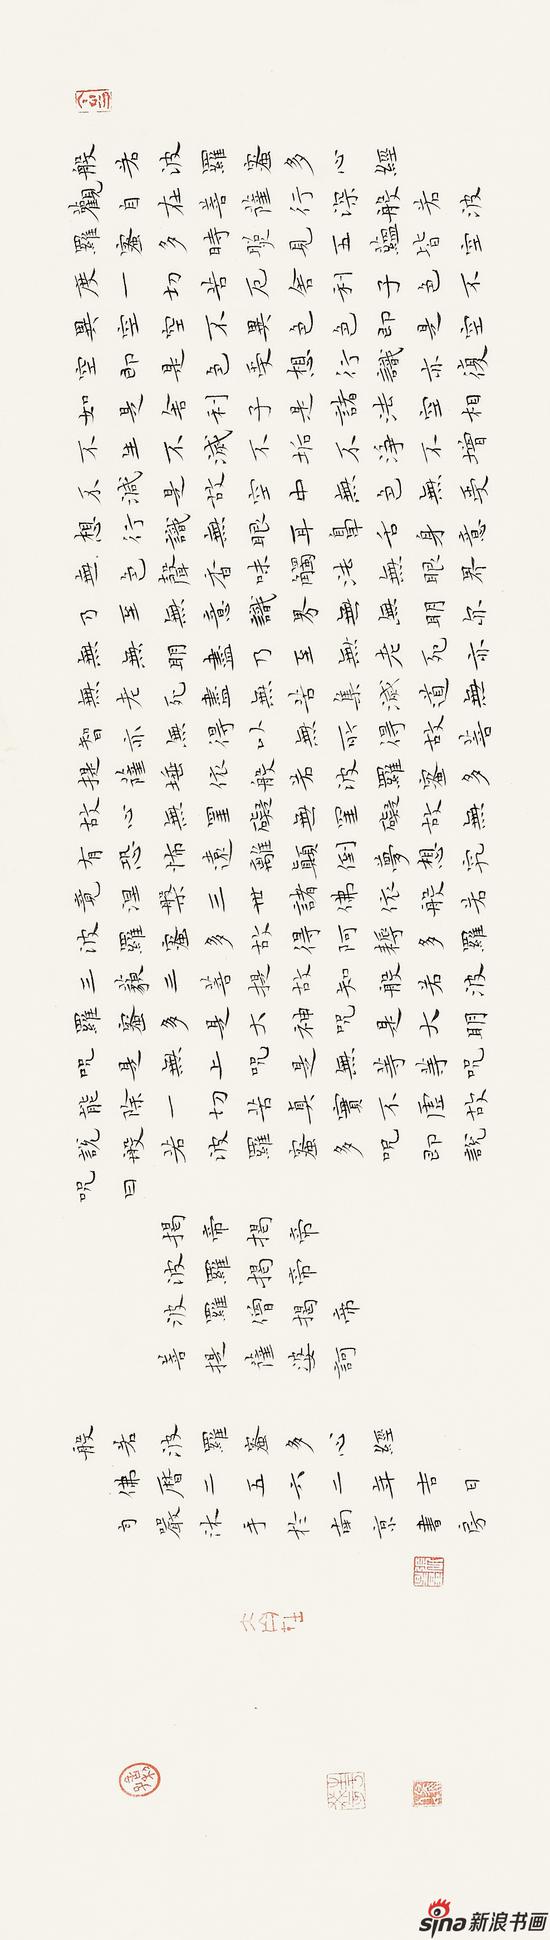 般若波羅蜜多心經
觀自在菩薩行深般若波
羅蜜多時照見五蘊皆空
度一切苦厄舍利子色不
異空空不異色色即是空
空即是色受想行識亦復
如是舍利子是諸法空相
不生不滅不垢不淨不增
不減是故空中無色無受
想行識無眼耳鼻舌身意
無色聲香味觸法無眼界
乃至無意識界無無明亦
無無明盡乃至無老死亦
無老死盡無苦集滅道無
智亦無得以無所得故菩
提薩埵依般若波羅蜜多
故心無罣礙無罣礙故無
有恐怖遠離顛倒夢想究
竟涅槃三世諸佛依般若
波羅蜜多故得阿耨多羅
三藐三菩提故知般若波
羅蜜多是大神咒是大明
咒是無上咒是無等等咒
能除一切苦真實不虛故
說般若波羅蜜多咒即說
咒曰
揭帝揭帝
波羅揭帝
波羅僧揭帝
菩提薩婆訶
般若波羅蜜多心經
佛曆二五六二年吉日
嚴沐手於南京書房
sina新浪书画